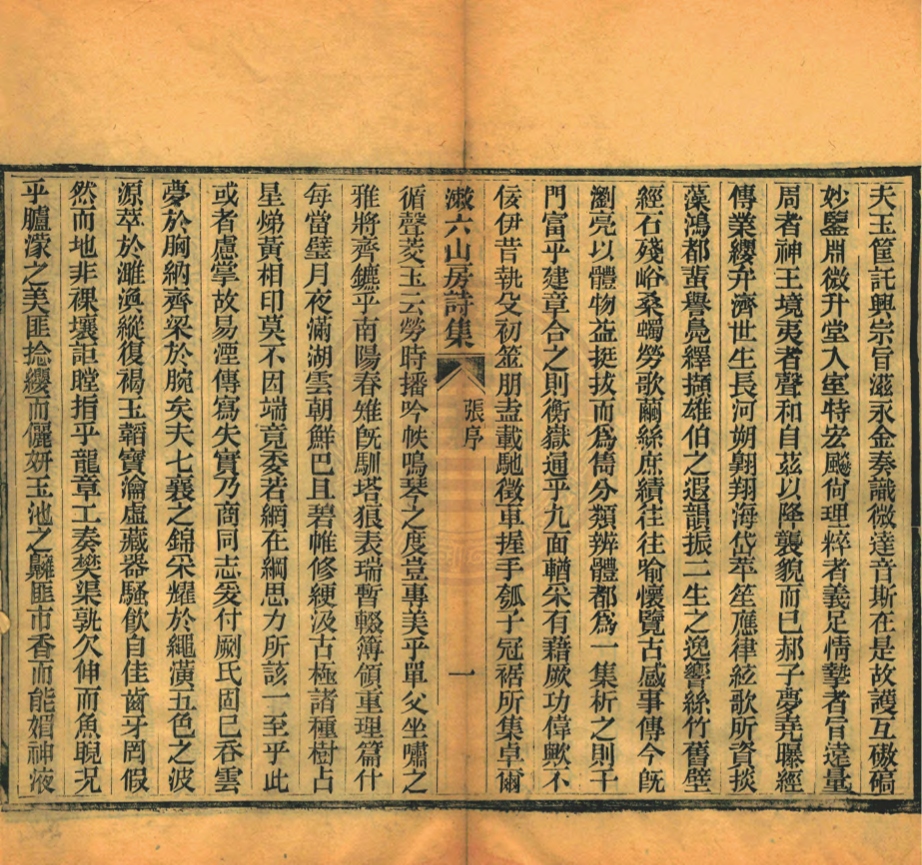 夫玉筐託興崇旨滋永金奏識微達音斯在是故謢互磝碻
妙鑒淵微升堂入室特宏飈尙理粹者義足情摯者旨遠量
周者神王境夷者聲和自茲以降襲貌而已郝子夢堯曝經
傳業纓弁濟世生長河朔翺翔海岱萃笙應律絃歌所資掞
藻鴻都蜚譽鳧繹擷雄伯之遐韻振二生之逸響絲竹舊壁
經石殘峪桑蠋勞歌繭絲庶績往往喻懷覽古感事傳今旣
瀏亮以體物益挺拔而爲雋分類辨體都爲一集析之則千
門富乎建章合之則衡嶽通乎九面輶采有藉厥功偉歟不
佞伊昔執殳初筮朋盍載馳徵車握手瓠子冠裾所集卓爾
漱六山房詩集
張序
一
循聲茭玉云勞時播吟帙鳴琴之度豈專美乎單父坐嘯之
雅將齊鑣乎南陽春雉旣馴塔狼表瑞暫輟簿領重理篇什
每當璧月夜滿湖雲朝鮮巴且碧帷修綆汲古極諸種樹占
星焍黃相印莫不因端竟委若網在綱思力所該一至乎此
或者慮掌故易湮傳寫失實乃商同志爰付劂氏固已吞雲
夢於胸納齊梁於腕矣夫七襄之錦采耀於繩潢五色之波
源萃於濉渙縱復褐玉韜寶瀹虛藏器騷飮自佳齒牙罔假
然而地非裸壤詎瞠指乎龍章工奏樊渠孰欠伸而魚睨況
乎臚濛之美匪捻纓而儷妍玉池之䶅匪市香而能媚神液